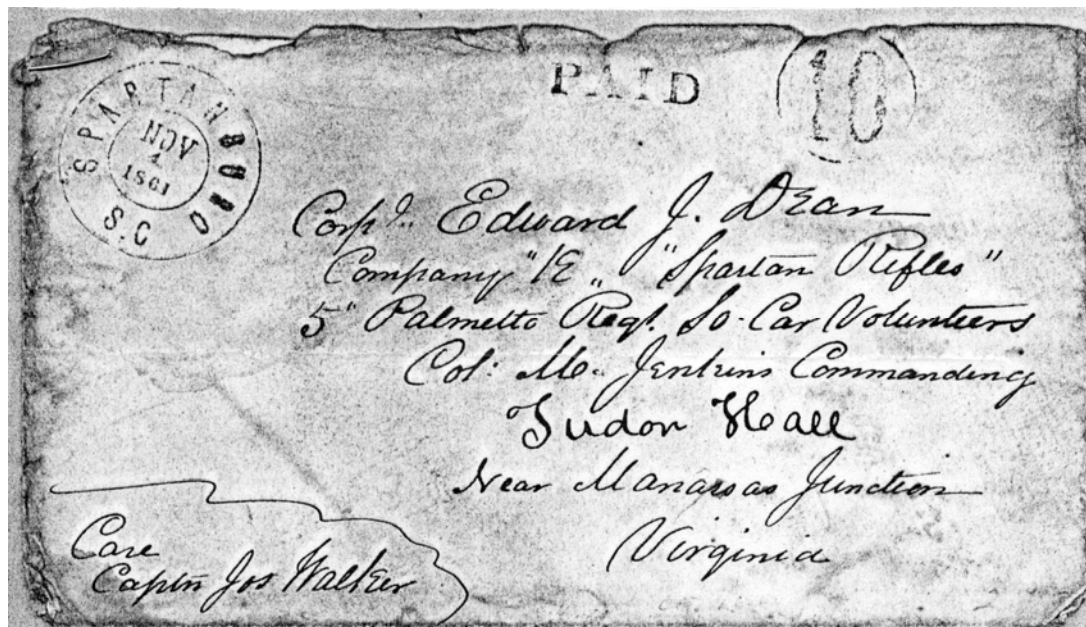 SPARTANBURG
S.C
NOV
1
1861
PAID
10
Corpl. Edward J. Dean
Company "E" "Spartan Rifles"
5" Palmetto Regt. So. Car Volunteers
Col: M. Jenkins Commanding
Tudor Hall
Near Manassas Junction
Virginia
Care
Captn Jos Walker